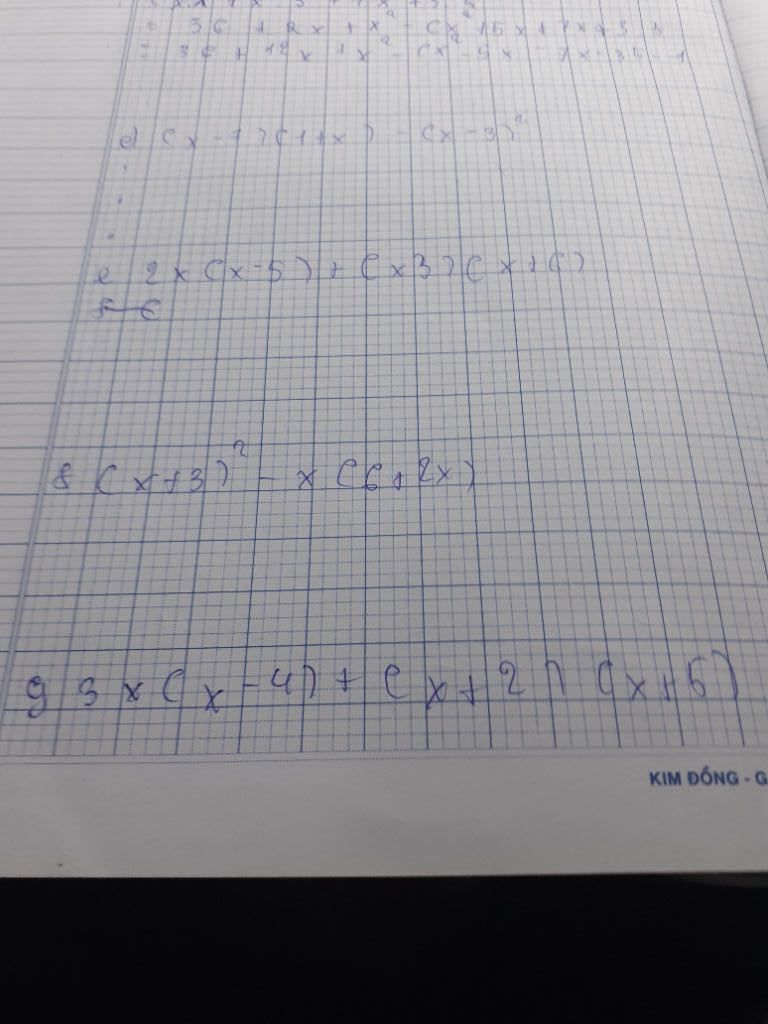 = 36 + 12x + x² - (x² + 5x + 7x + 35
= 36 + 12x + x² - (x² - 5x - 7x - 35 - 1
d) (x - 1)(1 + x) - (x - 3)²
e 2x(x - 5) + (x3)(x + 6)
f (x + 3)² - x(6 + 2x)
g 3x(x - 4) + (x + 2)(x + 5)
KIM ĐỒNG - G